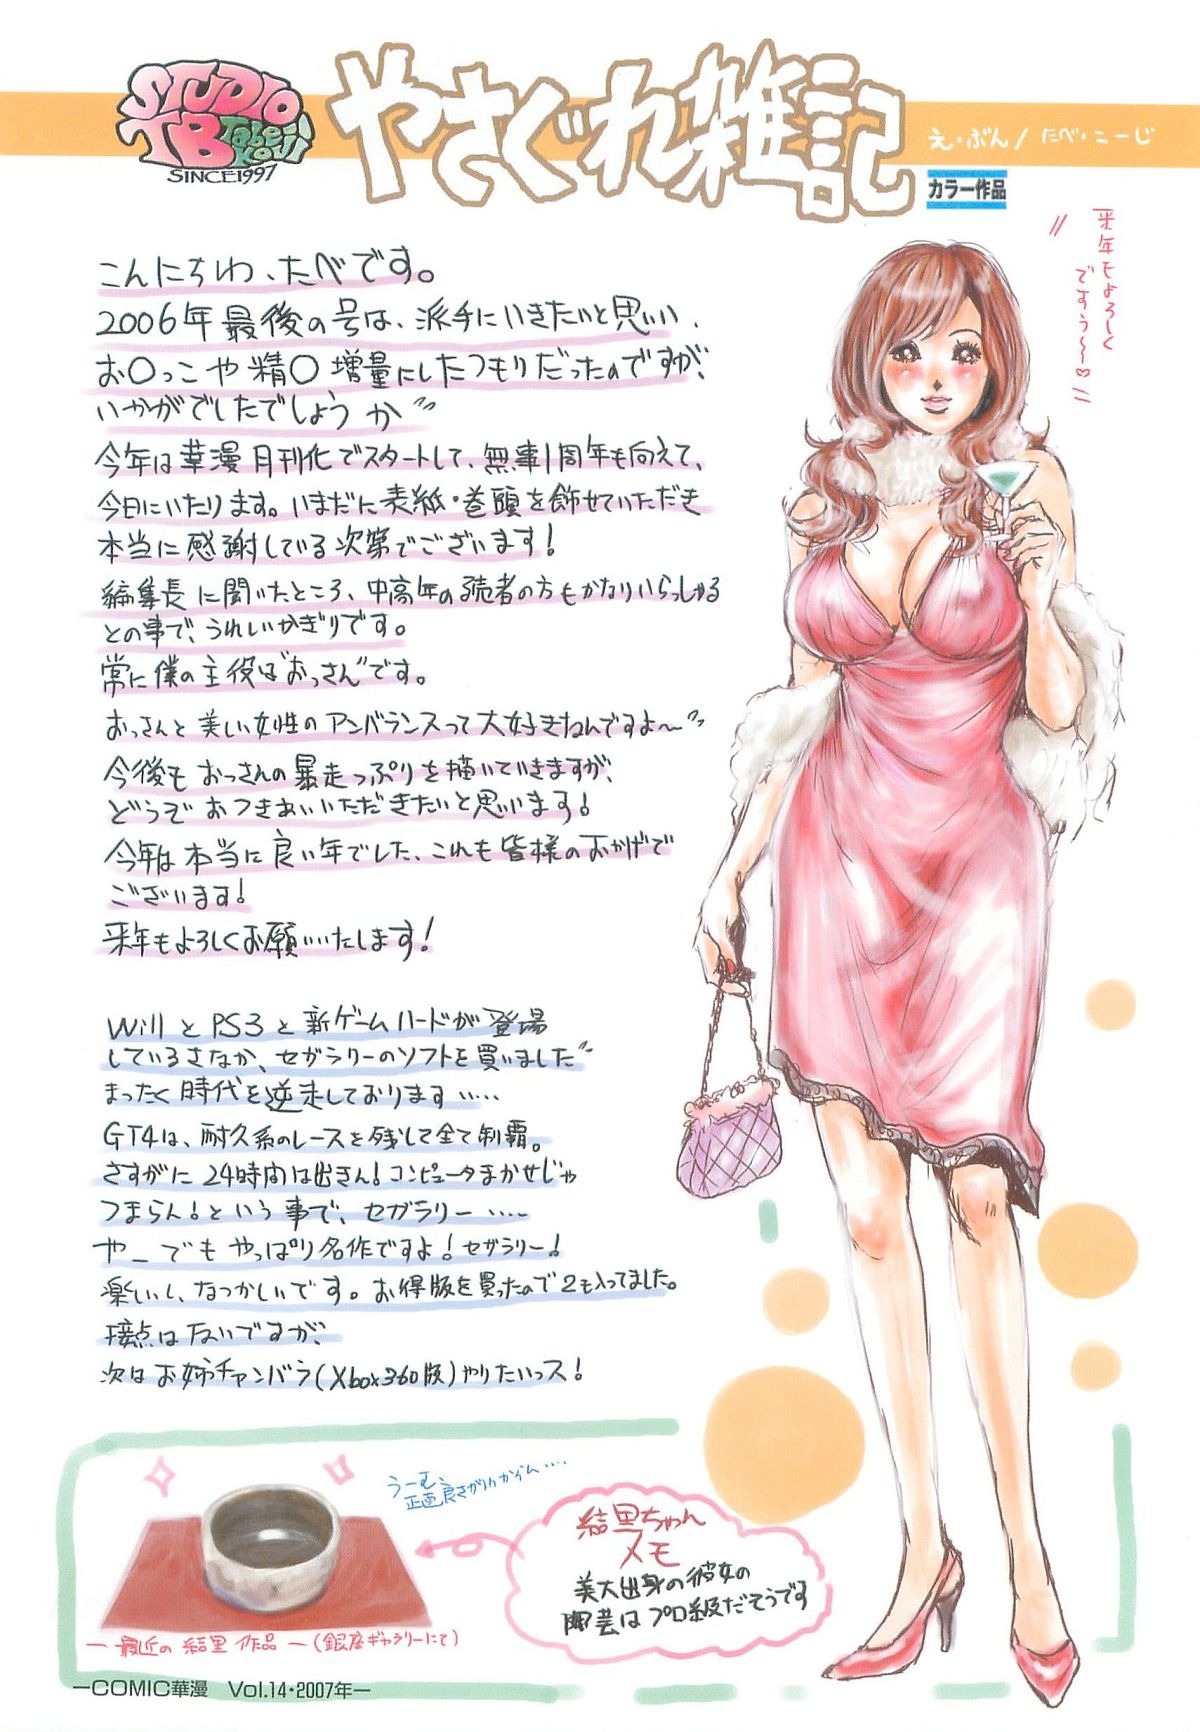 STUDIO
TB Tabe Koji
SINCE1997
やさぐれ雑記
え・ぶん/たべ・こーじ
カラー作品
来年もよろしく
ですぅ〜〜♡
こんにちわ、たべです。
2006年最後の号は、派手にいきたいと思い、
お〇っこや精〇増量にしたつもりだったのですが、
いかがでしたでしょうか〃
今年は華漫月刊化でスタートして、無事1周年も向えて、
今日にいたります。いまだに表紙・巻頭を飾せていただき
本当に感謝している次第でございます!
編集長に聞いたところ、中高年の読者の方もかなりいらっしゃる
との事で、うれしいかぎりです。
常に僕の主役は"おっさん"です。
おっさんと美しい女性のアンバランスって大好きなんですよ〜〃
今後もおっさんの暴走っぷりを描いていきますが、
どうぞおつきあいいただきたいと思います!
今年は本当に良い年でした、これも皆様のおかげで
ございます!
来年もよろしくお願いいたします!
WiiとPS3と新ゲームハードが登場
しているさなか、セガラリーのソフトを買いました〃
まったく時代を逆走しております……
GT4は、耐久系のレースを残して全て制覇。
さすがに24時間は出きん!コンピュータまかせじゃ
つまらん!という事で、セガラリー……
や_でもやっぱり名作ですよ!セガラリー!
楽しいし、なつかしいです。お得版を買ったので2も入ってました。
接点はないですが、
次はお姉チャンバラ(Xbox360版)やりたいっス!
うーむ、
結里ちゃん
メモ
美大出身の彼女の
陶芸はプロ級だそうです
― 最近の結里作品 ―(銀座ギャラリーにて)
―COMIC華漫 Vol.14・2007年―